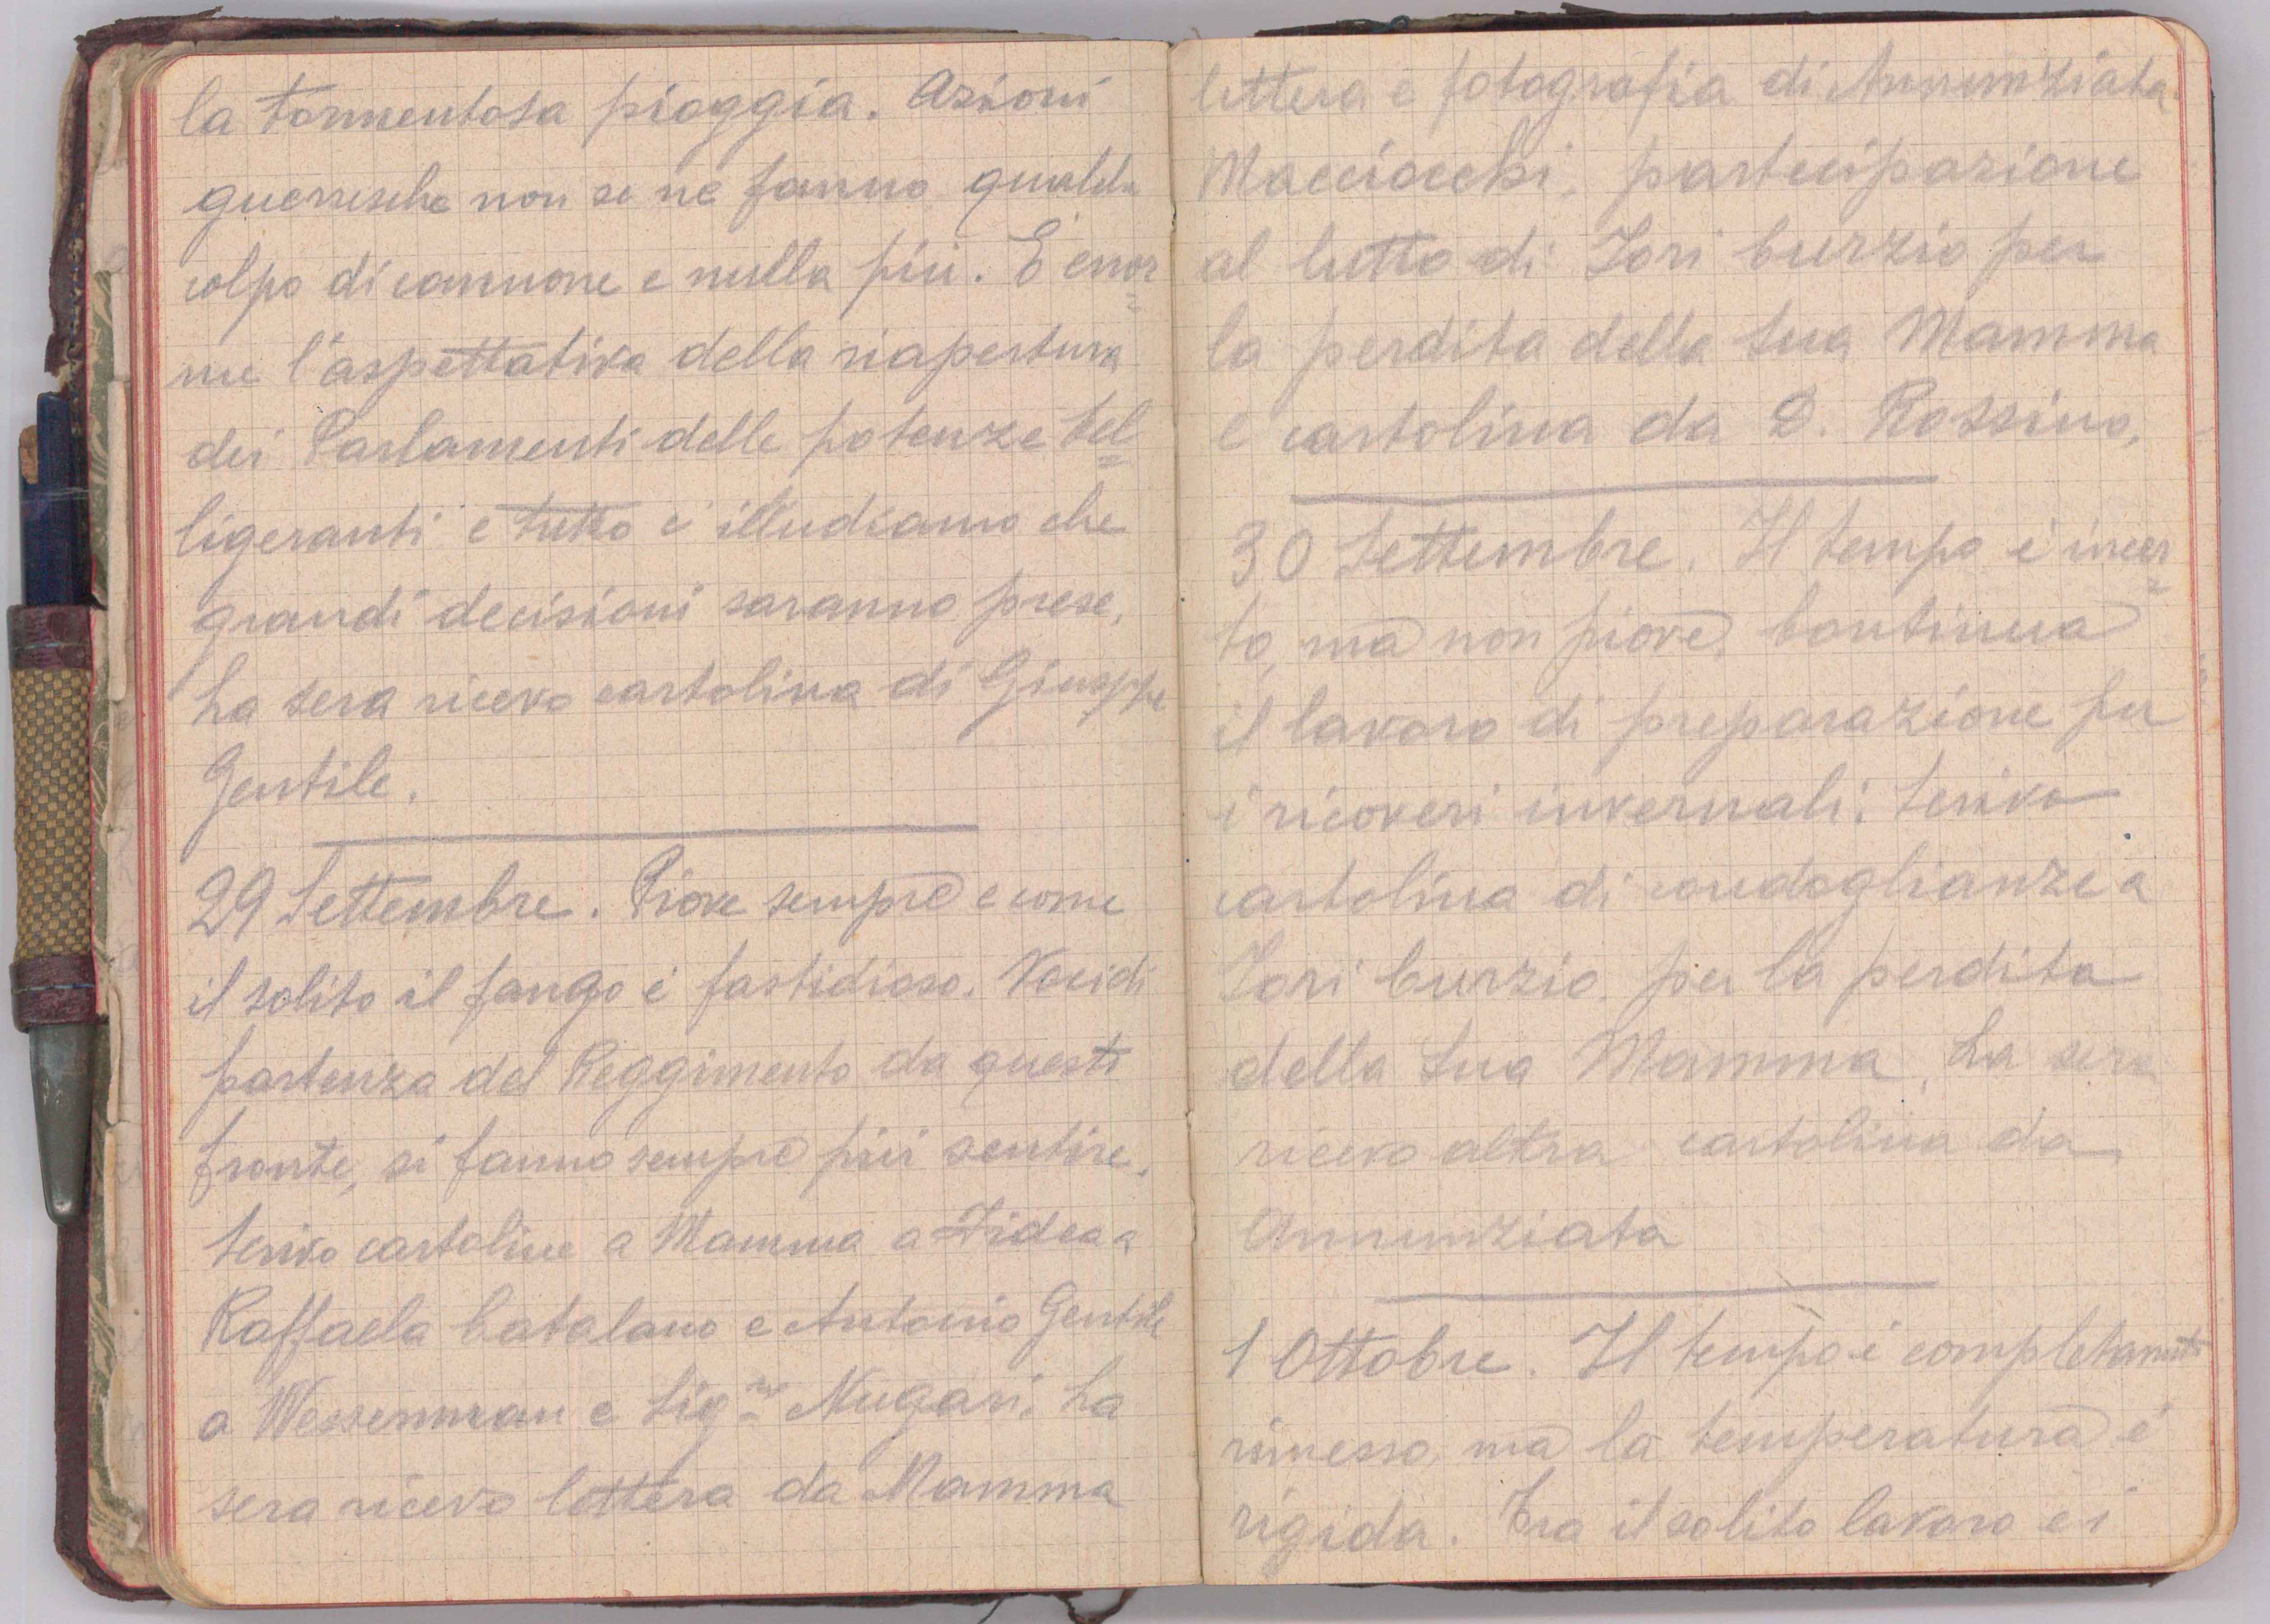 la tormentosa pioggia. Azioni
guerresche non se ne fanno, qualche
colpo di cannone e nulla più. È enor=
me l'aspettativa della riapertura
dei Parlamenti delle potenze bel=
ligeranti e tutto c'illudiamo che
grandi decisioni saranno prese.
La sera ricevo cartolina di Giuseppe
Gentile.
29 Settembre. Piove sempre e come
il solito il fango è fastidioso. Voci di
partenza del Reggimento da questi
fronte, si fanno sempre più sentire.
Scrivo cartoline a Mamma a Fidea a
Raffaela Catalano e Antonio Gentile
a Wessermann e Sig.na Nugari. La
sera ricevo lettera da Mamma
lettera e fotografia di Annunziata
Macciocchi, partecipazione
al lutto di Tori Curzio per
la perdita della sua Mamma
e cartolina da D. Rossino.
30 Settembre. Il tempo è incer=
to, ma non piove. Continua
il lavoro di preparazione per
i ricoveri invernali. Scrivo
cartolina di condoglianze a
Tori Curzio, per la perdita
della sua Mamma. La sera
ricevo altra cartolina da
Annunziata
1 Ottobre. Il tempo è completamente
rimesso, ma la temperatura è
rigida. Tra il solito lavoro e i